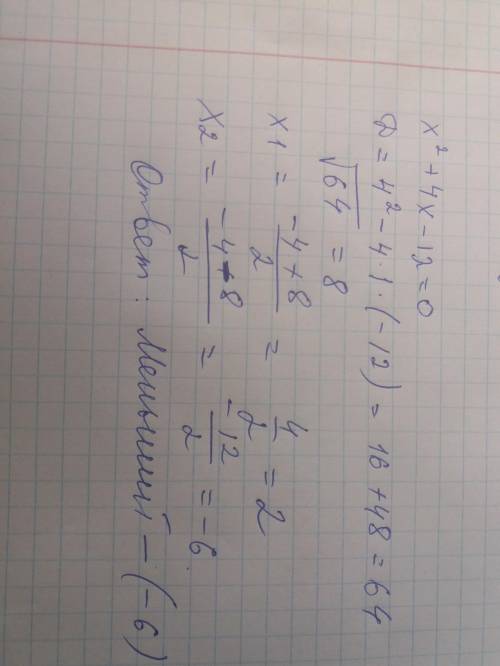 x² + 4x - 12 = 0
D = 4² - 4 · 1 · (-12) = 16 + 48 = 64
√64 = 8
x1 = (-4 + 8)/2 = 4/2 = 2
x2 = (-4 - 8)/2 = -12/2 = -6
Ответ: Меньший - (-6)